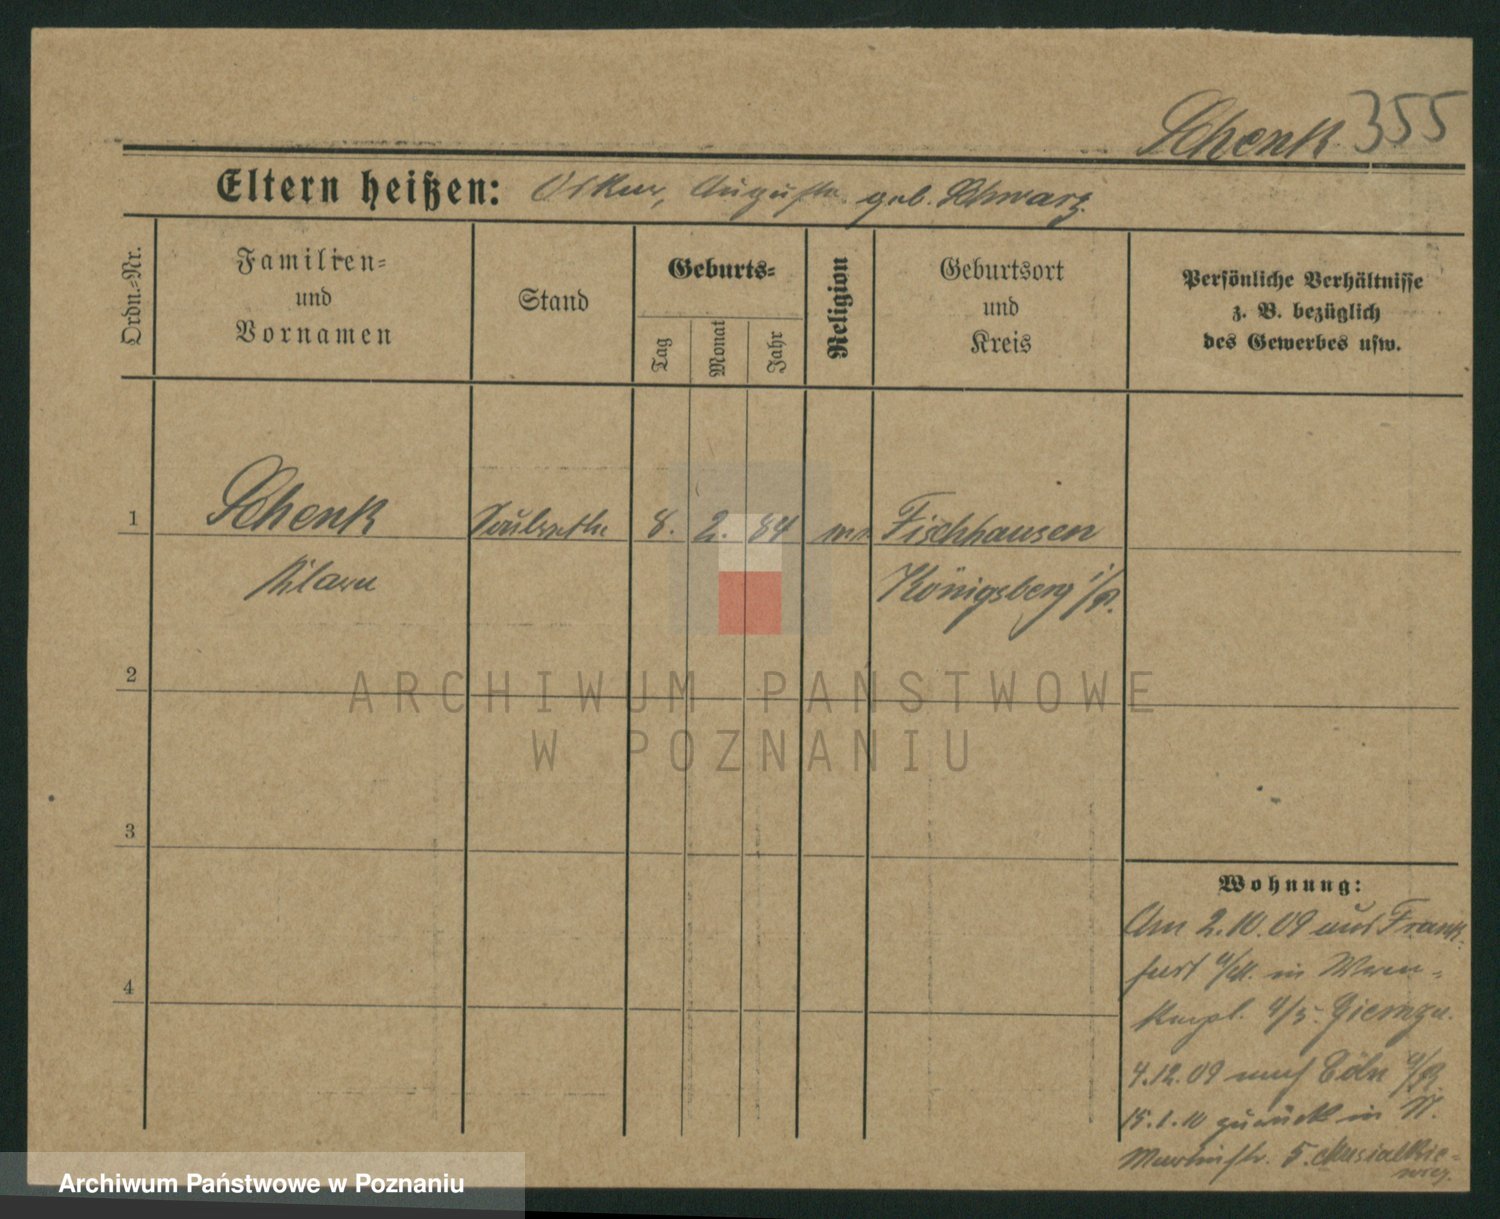 Schenk 355
Eltern heißen: Oskar, Auguste geb. Schwarz.
Ordn.-Nr.
Familien-
und
Vornamen
Stand
Geburts-
Tag
Monat
Jahr
Religion
Geburtsort
und
Kreis
Persönliche Verhältnisse
z. B. bezüglich
des Gewerbes usw.
1 Schenk 8. 2. 84 Fischhausen
Klara Königsberg i/P.
2
3
4
Wohnung:
Am 2.10.09 aus Frank-
furt a/M. in
4/5.
4.12.09 nach Cöln a/R.
15.1.10 zurück in St.
Martinstr. 5. Musialkie-
wicz.
ARCHIWUM PAŃSTWOWE
W POZNANIU
Archiwum Państwowe w Poznaniu